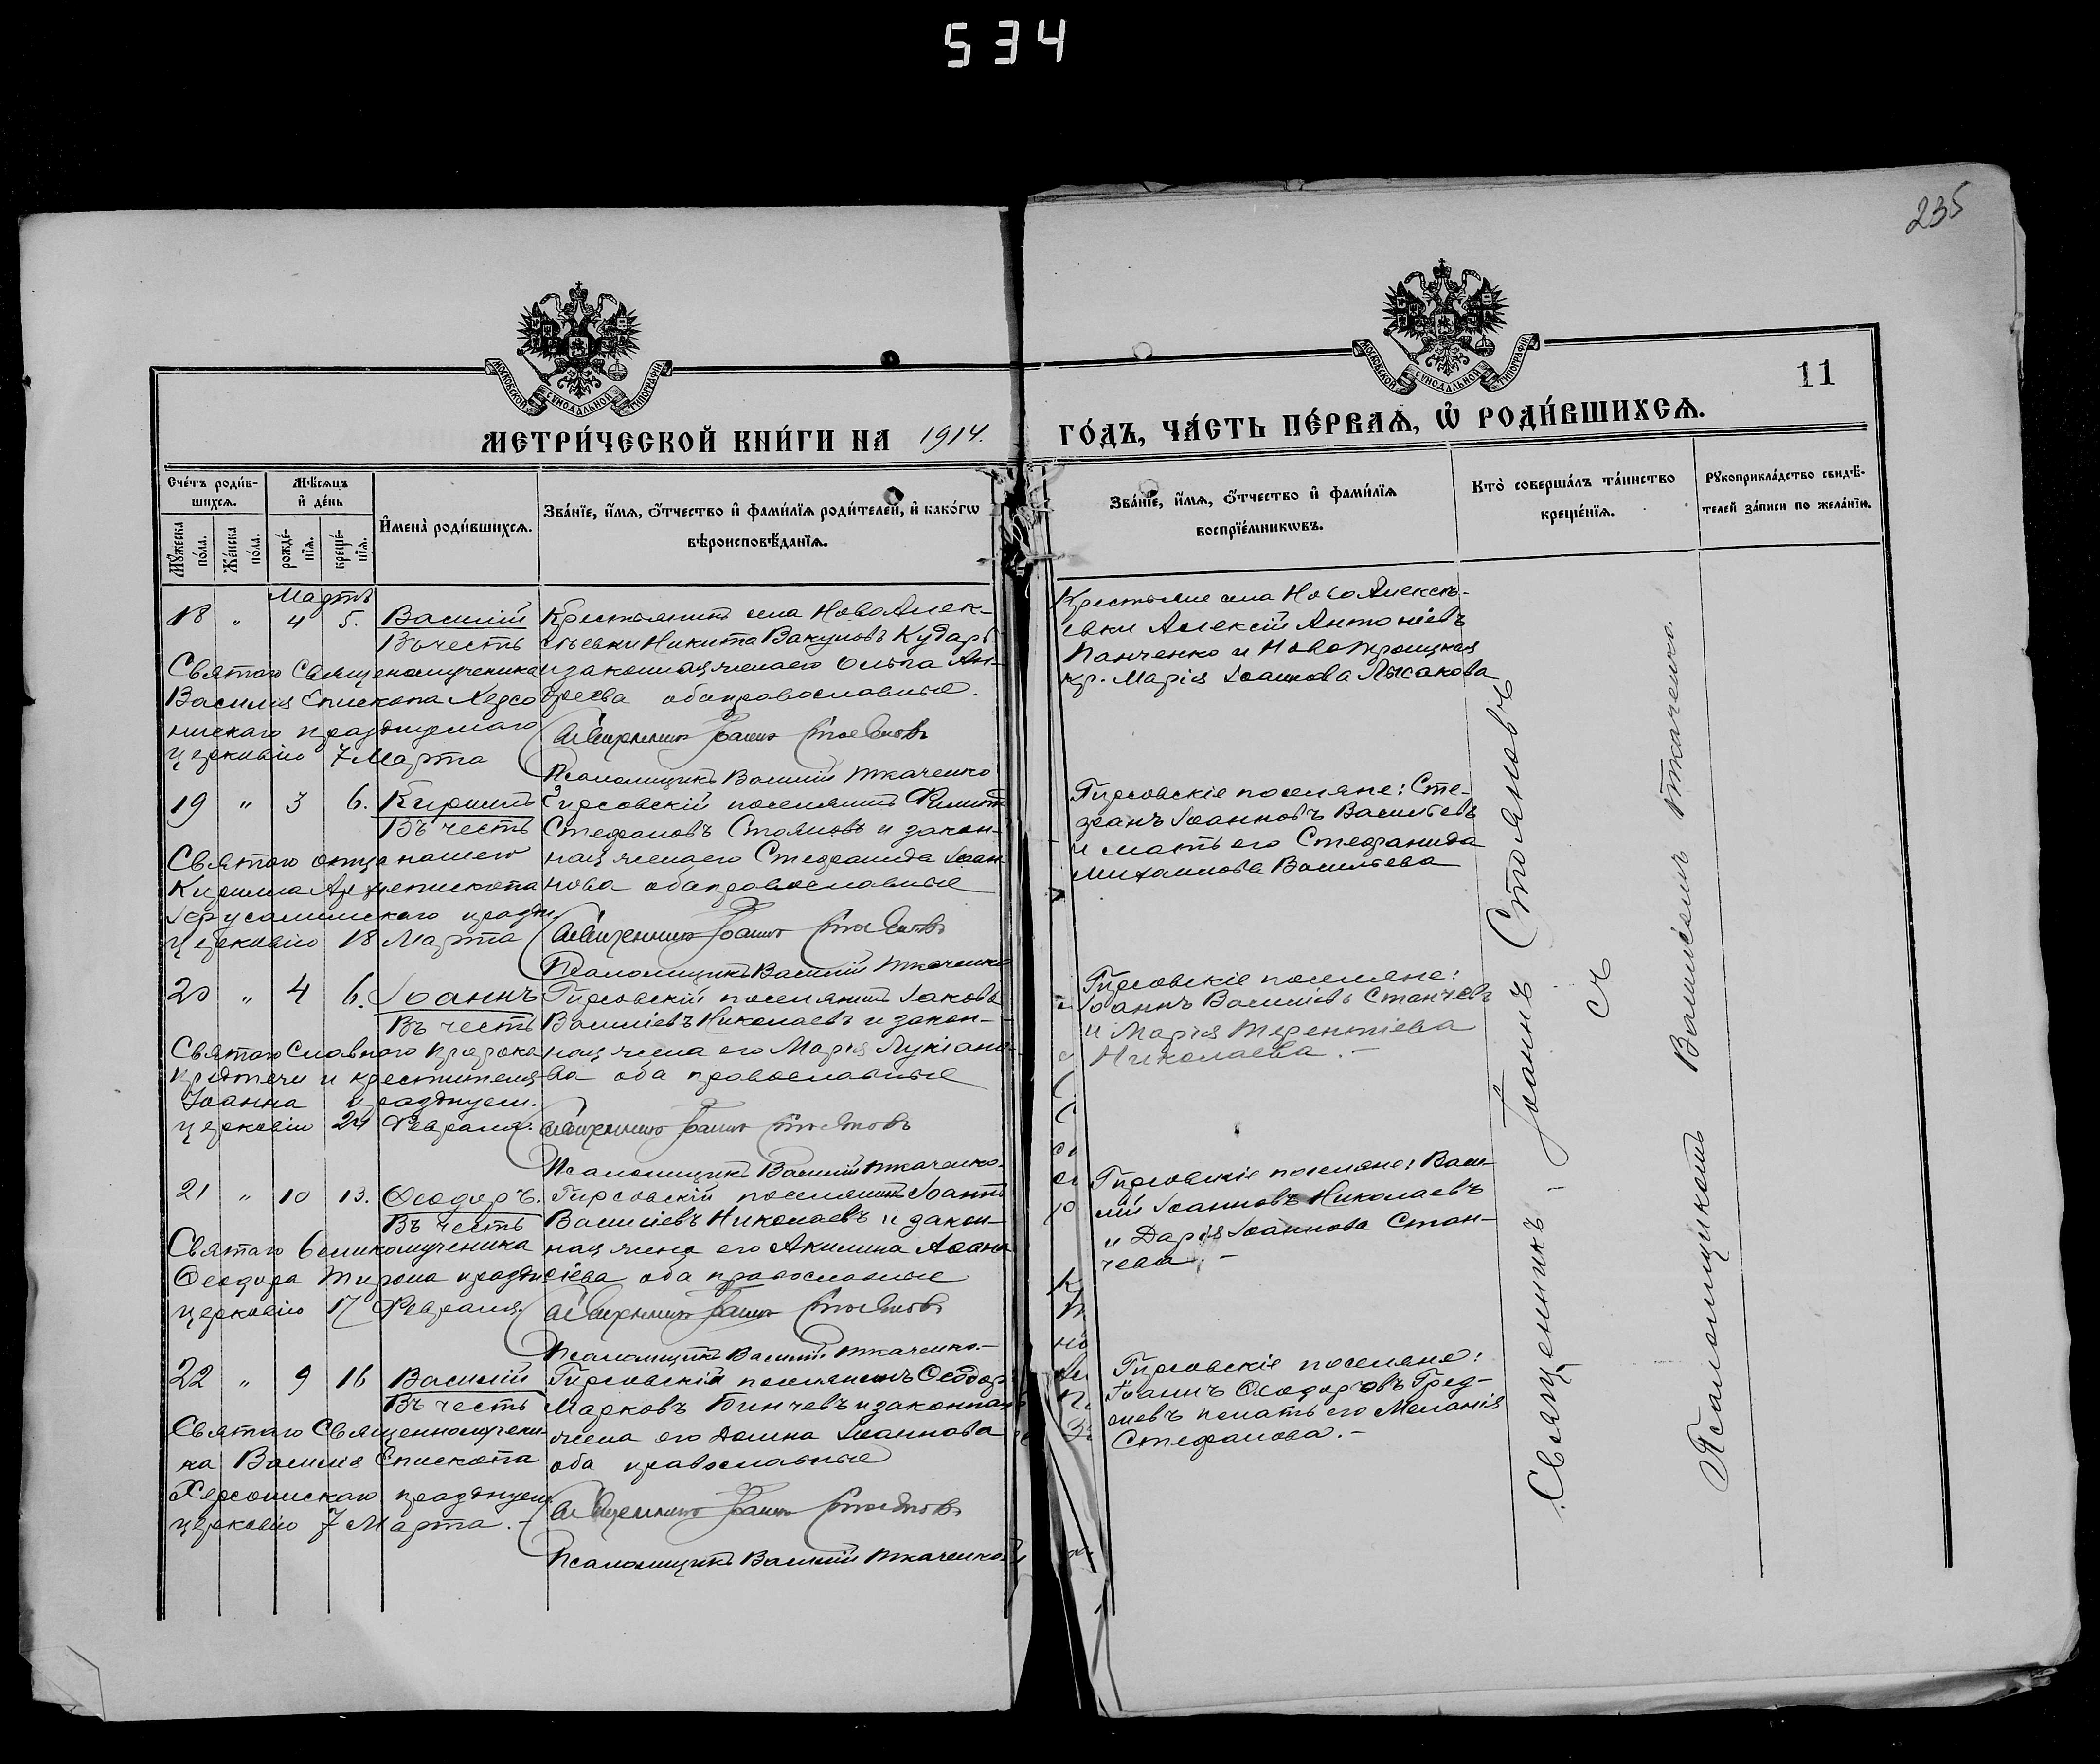 534
235
МОСКОВСКОЙ СУНОДАЛЬНОЙ ТИПОГРАФІИ
МОСКОВСКОЙ СУНОДАЛЬНОЙ ТИПОГРАФІИ
11
МЕТРИ́ЧЕСКОЙ КНИ́ГИ НА 1914.
ГО́ДЪ, ЧА́СТЬ ПЕ́РВАѦ, Ѽ РОДИ́ВШИХСѦ.
Сче́тъ роди́в-
шихсѧ.
Мѣ́сѧцъ
и҆ де́нь
Мꙋ́жеска
по́ла.
Же́нска
по́ла.
рожде́-
нїѧ.
креще́-
нїѧ.
И҆мена̀ роди́вшихсѧ.
Зва́нїе, и҆́мѧ, ѻ҆́тчество и҆ фами́лїѧ роди́телей, и҆ како́гѡ
вѣроисповѣ́данїѧ.
Зва́нїе, и҆́мѧ, ѻ҆́тчество и҆ фами́лїѧ
воспрїе́мникѡвъ.
Кто̀ соверша́лъ та́инство
креще́нїѧ.
Рꙋкоприкла́дство свидѣ́-
телей за́писи по жела́нїю.
Мартъ
18 " 4 5. Василій
Въ честь
Святаго Священномученика
Василія Епископа Херсо
нискаго празднуемаго
церковію 7 Марта
Крестьянинъ села НовоАлек-
сѣевки Никита Вакуловъ Кударь
и законная жена его Ольга Ан-
дреева оба православные.
Священникъ Іоаннъ Стояновъ
Псаломщикъ Василій Ткаченко
Крестьяне села НовоАлексѣ-
евки Алексій Антоніевъ
Панченко и Новотроицкая
кр. Марія Іоаннова Лысакова
19 " 3 6. Кириллъ
Въ честь
Святаго отца нашего
Кирилла Архіепископа
Іерусалимскаго праздн.
церковію 18 Марта
Гирсовскій поселянинъ Филиппъ
Стефановъ Стояновъ и закон-
ная жена его Стефанида Іоан
нова оба православные
Священникъ Іоаннъ Стояновъ
Псаломщикъ Василій Ткаченко
Гирсовскіе поселяне: Сте-
фанъ Іоанновъ Васильевъ
и мать его Стефанида
Михаилова Васильева
20 " 4 6. Іоаннъ
Въ честь
Святаго Славнаго Пророка
Предтечи и крестителя
Іоанна празднуем.
церковію 24 Февраля.
Гирсовскій поселянинъ Іаковъ
Василіевъ Николаевъ и закон-
ная жена его Марія Лукіано-
ва оба православные
Священникъ Іоаннъ Стояновъ
Псаломщикъ Василій Ткаченко.
Гирсовскіе поселяне:
Іоаннъ Василіевъ Станчевъ
и Марія Терентіева
Николаева.-
21 " 10 13. Ѳеодоръ.
Въ честь
Святаго Великомученика
Ѳеодора Тирона праздн
церковію 17 Февраля.
Гирсовскій поселянинъ Іоаннъ
Василіевъ Николаевъ и закон-
ная жена его Акилина Аѳана
сіева оба православные
Священникъ Іоаннъ Стояновъ
Псаломщикъ Василій Ткаченко.-
Гирсовскіе поселяне: Васи-
лій Іоанновъ Николаевъ
и Дарія Іоаннова Стан-
чева.-
22 " 9 16 Василій
Въ честь
Святаго Священномучени
ка Василія Епископа
Херсонискаго празднуем
церковію 7 Марта.-
Гирсовскій поселянинъ Ѳеодоръ
Марковъ Бинчевъ и законная
жена его Домна Іоаннова
оба православные
Священникъ Іоаннъ Стояновъ
Псаломщикъ Василій Ткаченко
Гирсовскіе поселяне:
Іоаннъ Ѳеодоровъ
и мать его Меланія
Стефанова.-
Священникъ - Іоаннъ Стояновъ
съ
Псаломщикомъ Василіемъ Ткаченко.